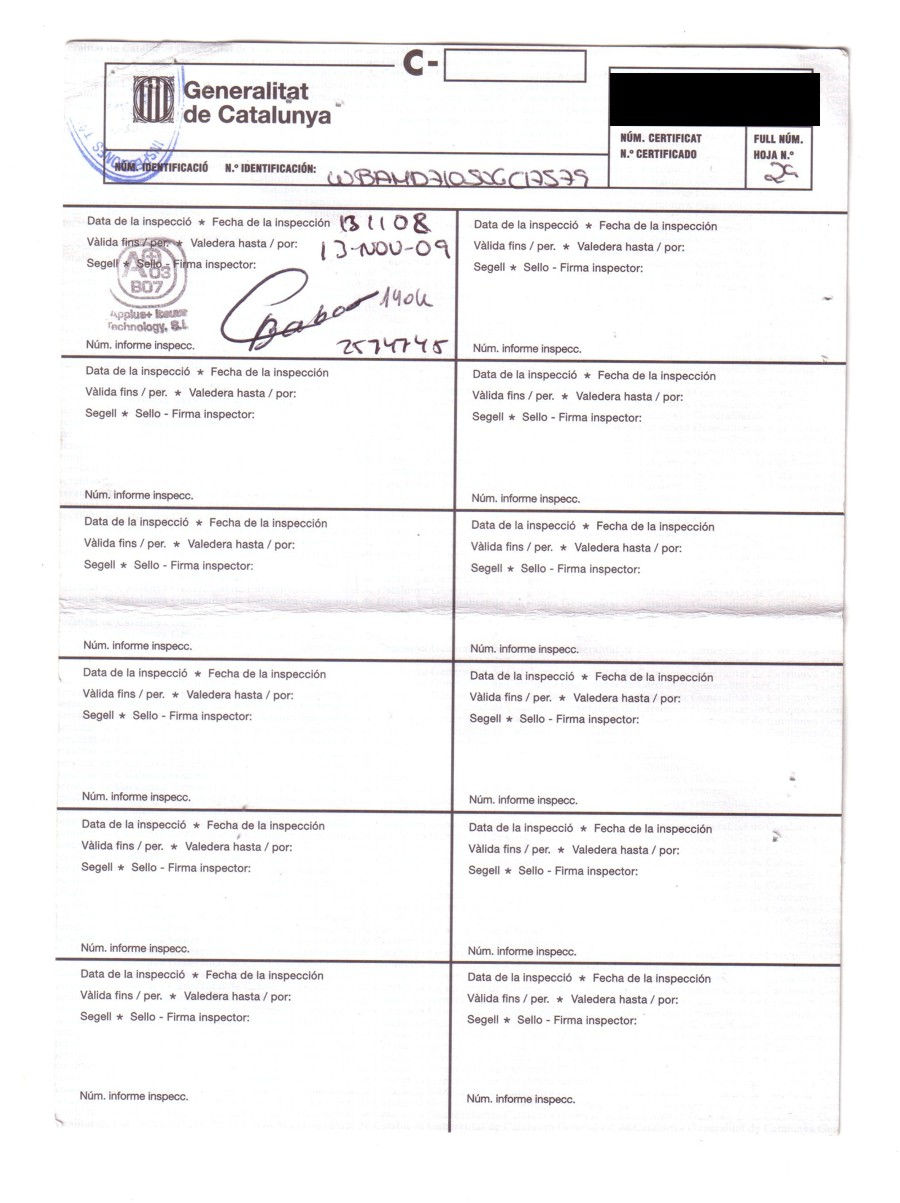 C-
Generalitat
de Catalunya
NÚM. CERTIFICAT
N.º CERTIFICADO
FULL NÚM.
HOJA N.º
NÚM. IDENTIFICACIÓ N.º IDENTIFICACIÓN:
Data de la inspecció * Fecha de la inspección 131108
Vàlida fins / per. * Valedera hasta / por: 13-NOV-09
Segell * Sello - Firma inspector:
03
B07
Applus+
Technology, S.L.
140k
Núm. informe inspecc. 2574745
Data de la inspecció * Fecha de la inspección
Vàlida fins / per. * Valedera hasta / por:
Segell * Sello - Firma inspector:
Núm. informe inspecc.
Data de la inspecció * Fecha de la inspección
Vàlida fins / per. * Valedera hasta / por:
Segell * Sello - Firma inspector:
Núm. informe inspecc.
Data de la inspecció * Fecha de la inspección
Vàlida fins / per. * Valedera hasta / por:
Segell * Sello - Firma inspector:
Núm. informe inspecc.
Data de la inspecció * Fecha de la inspección
Vàlida fins / per. * Valedera hasta / por:
Segell * Sello - Firma inspector:
Núm. informe inspecc.
Data de la inspecció * Fecha de la inspección
Vàlida fins / per. * Valedera hasta / por:
Segell * Sello - Firma inspector:
Núm. informe inspecc.
Data de la inspecció * Fecha de la inspección
Vàlida fins / per. * Valedera hasta / por:
Segell * Sello - Firma inspector:
Núm. informe inspecc.
Data de la inspecció * Fecha de la inspección
Vàlida fins / per. * Valedera hasta / por:
Segell * Sello - Firma inspector:
Núm. informe inspecc.
Data de la inspecció * Fecha de la inspección
Vàlida fins / per. * Valedera hasta / por:
Segell * Sello - Firma inspector:
Núm. informe inspecc.
Data de la inspecció * Fecha de la inspección
Vàlida fins / per. * Valedera hasta / por:
Segell * Sello - Firma inspector:
Núm. informe inspecc.
Data de la inspecció * Fecha de la inspección
Vàlida fins / per. * Valedera hasta / por:
Segell * Sello - Firma inspector:
Núm. informe inspecc.
Data de la inspecció * Fecha de la inspección
Vàlida fins / per. * Valedera hasta / por:
Segell * Sello - Firma inspector:
Núm. informe inspecc.